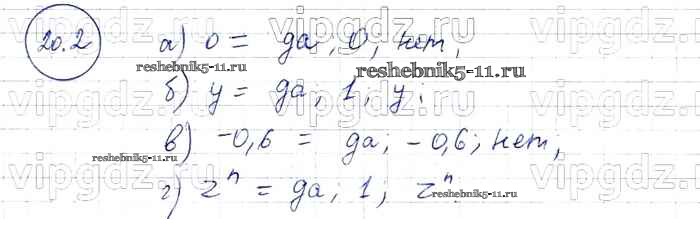 20.2 а) 0 = да, 0, нет;
reshebnik5-11.ru reshebnik5-11.ru
vipgdz.ru vipgdz.ru
б) y = да, 1, y;
в) -0,6 = да; -0,6; нет;
reshebnik5-11.ru
vipgdz.ru vipgdz.ru
г) zⁿ = да; 1; zⁿ
reshebnik5-11.ru